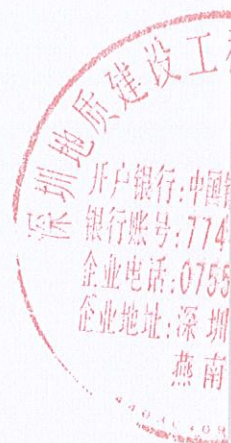 深圳地质建设工
开户银行:中国
银行账号:774
企业电话:0755
企业地址:深圳
燕南